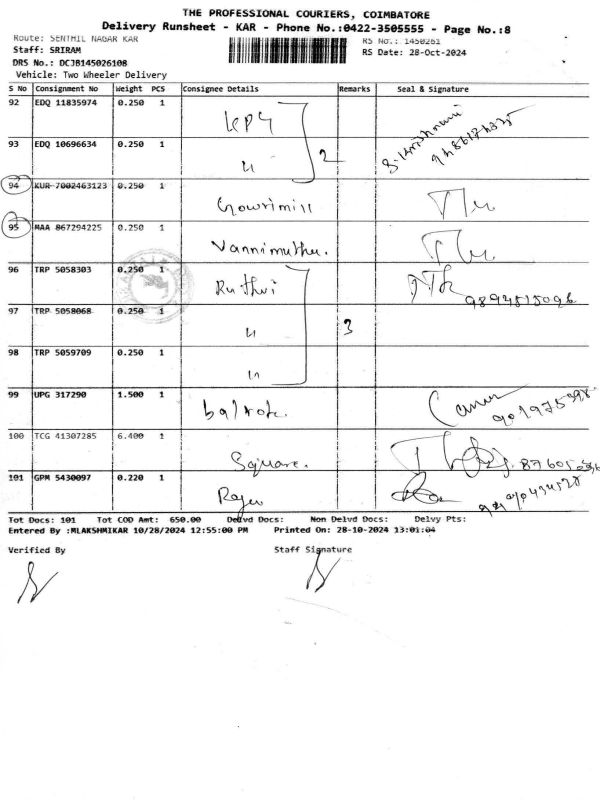 THE PROFESSIONAL COURIERS, COIMBATORE
Delivery Runsheet - KAR - Phone No.:0422-3505555 - Page No.:8
Route: SENTHIL NAGAR KAR
RS No.: 1450261
Staff: SRIRAM
RS Date: 28-Oct-2024
DRS No.: DCJB145026108
Vehicle: Two Wheeler Delivery
S No Consignment No Weight PCS Consignee Details Remarks Seal & Signature
92 EDQ 11835974 0.250 1 KPY
93 EDQ 10696634 0.250 1 u 2
94 KUR 7002463123 0.250 1 Gowrimill
95 MAA 867294225 0.250 1 Vannimuthu.
96 TRP 5058303 0.250 1 Ruthvi 9894515096
97 TRP 5058068 0.250 1 u 3
98 TRP 5059709 0.250 1 u
99 UPG 317290 1.500 1
100 TCG 41307285 6.400 1 Square.
101 GPM 5430097 0.220 1 Rajev
Tot Docs: 101 Tot COD Amt: 650.00 Delvd Docs: Non Delvd Docs: Delvy Pts:
Entered By :MLAKSHMIKAR 10/28/2024 12:55:00 PM Printed On: 28-10-2024 13:01:04
Verified By Staff Signature